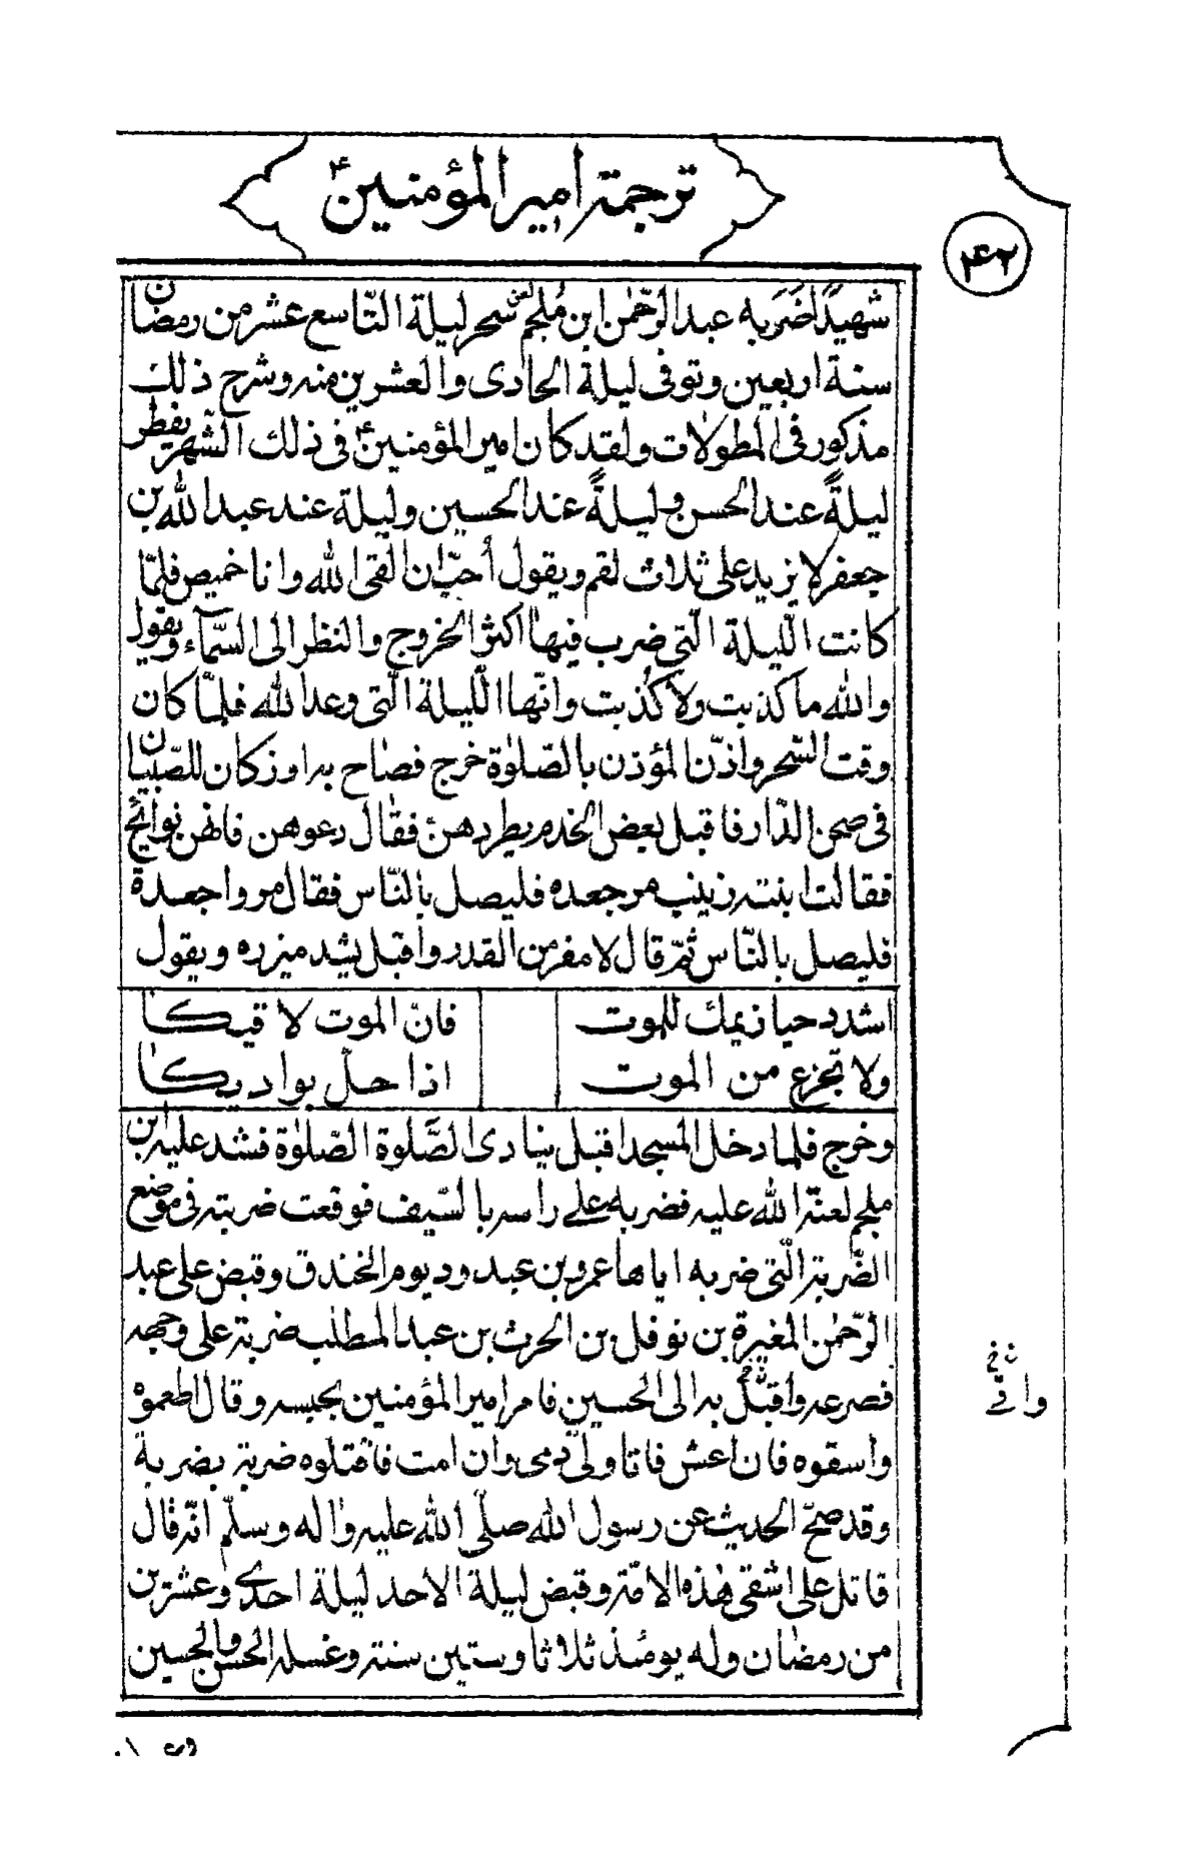 ترجمة امیر المؤمنین ع
۴۲
شهیدًا ضَرَبه عبد الرّحمٰن ابن مُلجم لعن سحر لیلة التّاسع عشر من رمضان
سنة اربعین وتوفی لیلة الحادی والعشرین منه وشرح ذلك
مذکور فی المطولات ولقد کان امیر المؤمنین ع فی ذلك الشّهر یفطر
لیلةً عند الحسن و لیلةً عند الحسین ولیلة عند عبد الله بن
جعفر لا یزید علی ثلاث لقم ویقول أحبّ ان القی الله وانا خمیص فلمّا
کانت اللّیلة الّتی ضرب فیها اکثر الخروج والنظر الی السّمآء ویقول
والله ما کذبت ولا کُذبت وانّها اللّیلة الّتی وعد الله فلمّا کان
وقت السّحر واذّن المؤذن بالصّلوٰة خرج فصاح به اوز کان للصّبیان
فی صحن الدّار فاقبل بعض الخدم یطردهنّ فقال دعوهن فانهن نوائح
فقالت ابنته زینب مر جعده فلیصل بالنّاس فقال مروا جعدة
فلیصل بالنّاس ثمّ قال لا مفر من القدر واقبل یشد میزره ویقول
اشدد حیازیمك للموت فانّ الموت لا قیکا
ولا تجزع من الموت اذا حلّ بوادیکا
وخرج فلما دخل المسجد اقبل ینادی الصَّلوة الصّلوٰة فشد علیه ابن
ملجم لعنة الله علیه فضربه علی راسه بالسّیف فوقعت ضربته فی موضع
الضّربة الّتی ضربه ایاها عمرو بن عبد ود یوم الخندق وقبض علی عبد
الرّحمٰن المغیرة بن نوفل بن الحرث بن عبد المطلب ضربة علی وجهه
فصرعه واقبل به الی الحسین فامر امیر المؤمنین بحبسه وقال اطعموه
واسقوه فان اعش فانا ولیّ دمی وان امت فاقتلوه ضربة بضربة
وقد صحّ الحدیث عن رسول الله صلّی الله علیه واٰله وسلّم انّه قال
قاتل علی اشقی هٰذه الامّة وقبض لیلة الاحد لیلة احدی وعشرین
من رمضان وله یومئذ ثلاثا وستین سنة وغسله الحسن والحسین